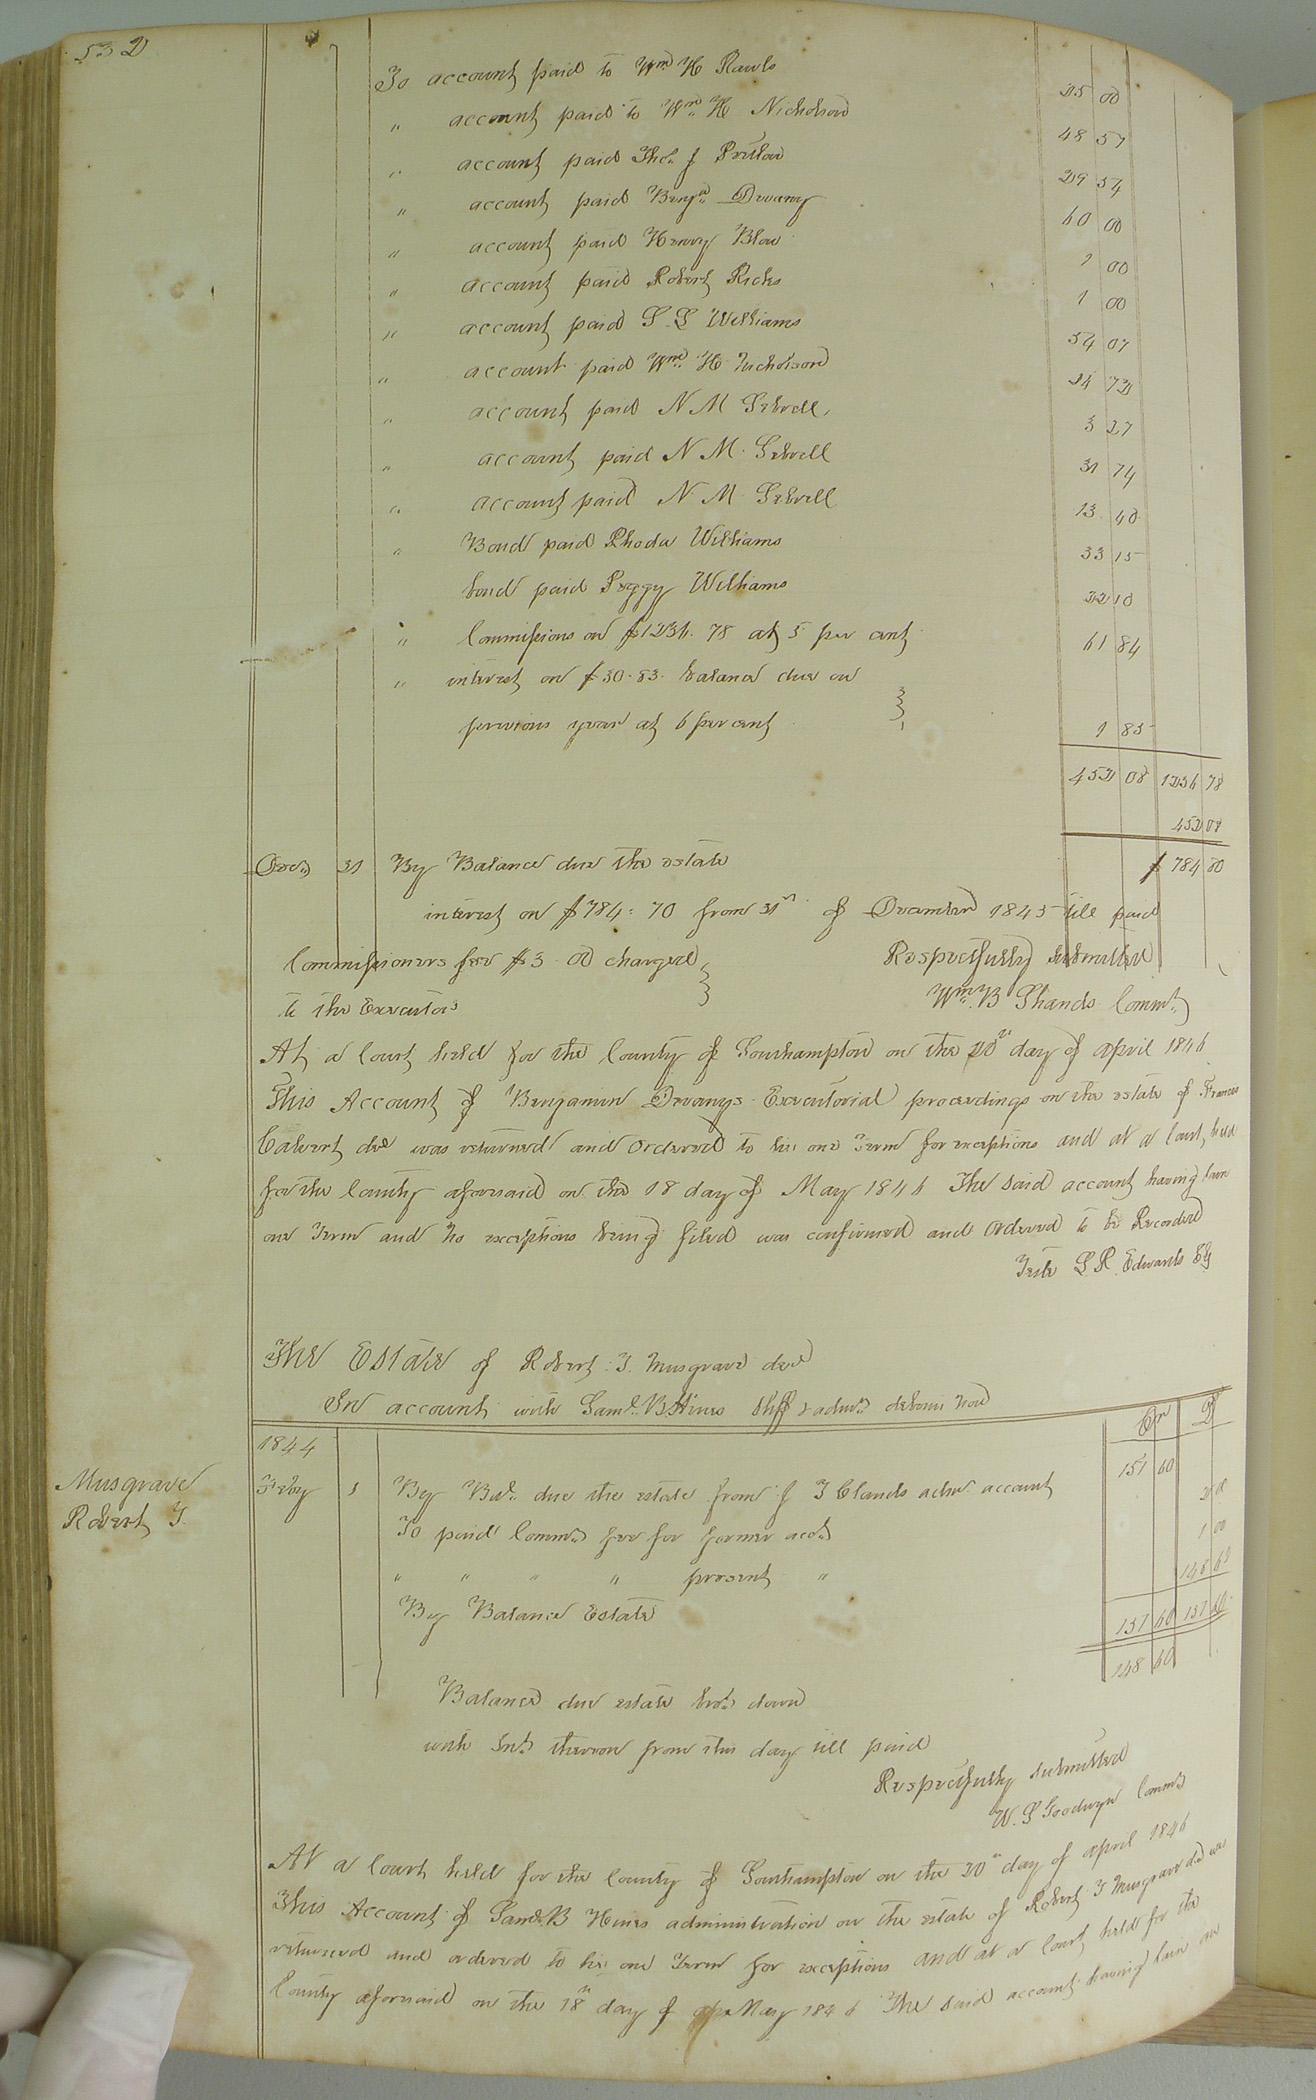 532
To account paid to Wm H Rawls 25 00
" account paid to Wm H Nicholson 48 57
" account paid Tho. J Pretlow 29 54
" account paid Benjn Devany 60 00
" account paid Henry Blow 1 00
" account paid Robert Ricks 1 00
" account paid S. S Williams 54 07
" account paid Wm H Nicholson 24 72
" account paid N M Sebrell 3 27
" account paid N. M. Sebrell 31 74
" account paid N M Sebrell 13 40
" Bond paid Rhoda Williams 33 15
bond paid Peggy Williams 22 10
" Commissions on $1236.78 at 5 per cent 61 84
" interest on $30.83. balance due on
previous year at 6 per cent 1 85
452 08 1236 78
452 08
Decr 31 By Balance due the estate $ 784 80
interest on $784:70 from 31st of December 1845 till paid
Commissioners fee $3.00 charged Respectfully submitted
to the Executors Wm B Shands Commr
At a Court held for the County of Southampton on the 20th day of April 1846
This Account of Benjamin Devanys Executorial proceedings on the estate of Frances
Calvert decd was returned and Ordered to lie one Term for exceptions and at a Court held
for the County aforesaid on the 18 day of May 1846 The said account having lain
one Term and No exceptions being filed was confirmed and Ordered to be Recorded
Teste L. R. Edwards Clk
The Estate of Robert T. Musgrave decd
In account with Saml. B Hines Shff & admr debonis non
Cr Dr
1844
Musgrave
Robert T.
Feby 1 By Bal. due the estate from J T Clands admr account 151 60
To paid Commrs fee for former acct 2 00
" " " " present " 1 00
By Balance Estate 148 60
151 60 151 60
148 60
Balance due estate brot down
with Int thereon from this day till paid
Respectfully submitted
W. S Goodwyn Commr
At a Court held for the County of Southampton on the 20th day of April 1846
This Account of Saml. B Hines administration on the estate of Robert T Musgrave decd was
returned and ordered to lie one Term for exceptions and at a Court held for the
County aforesaid on the 18th day of May 1846 The said account having lain one